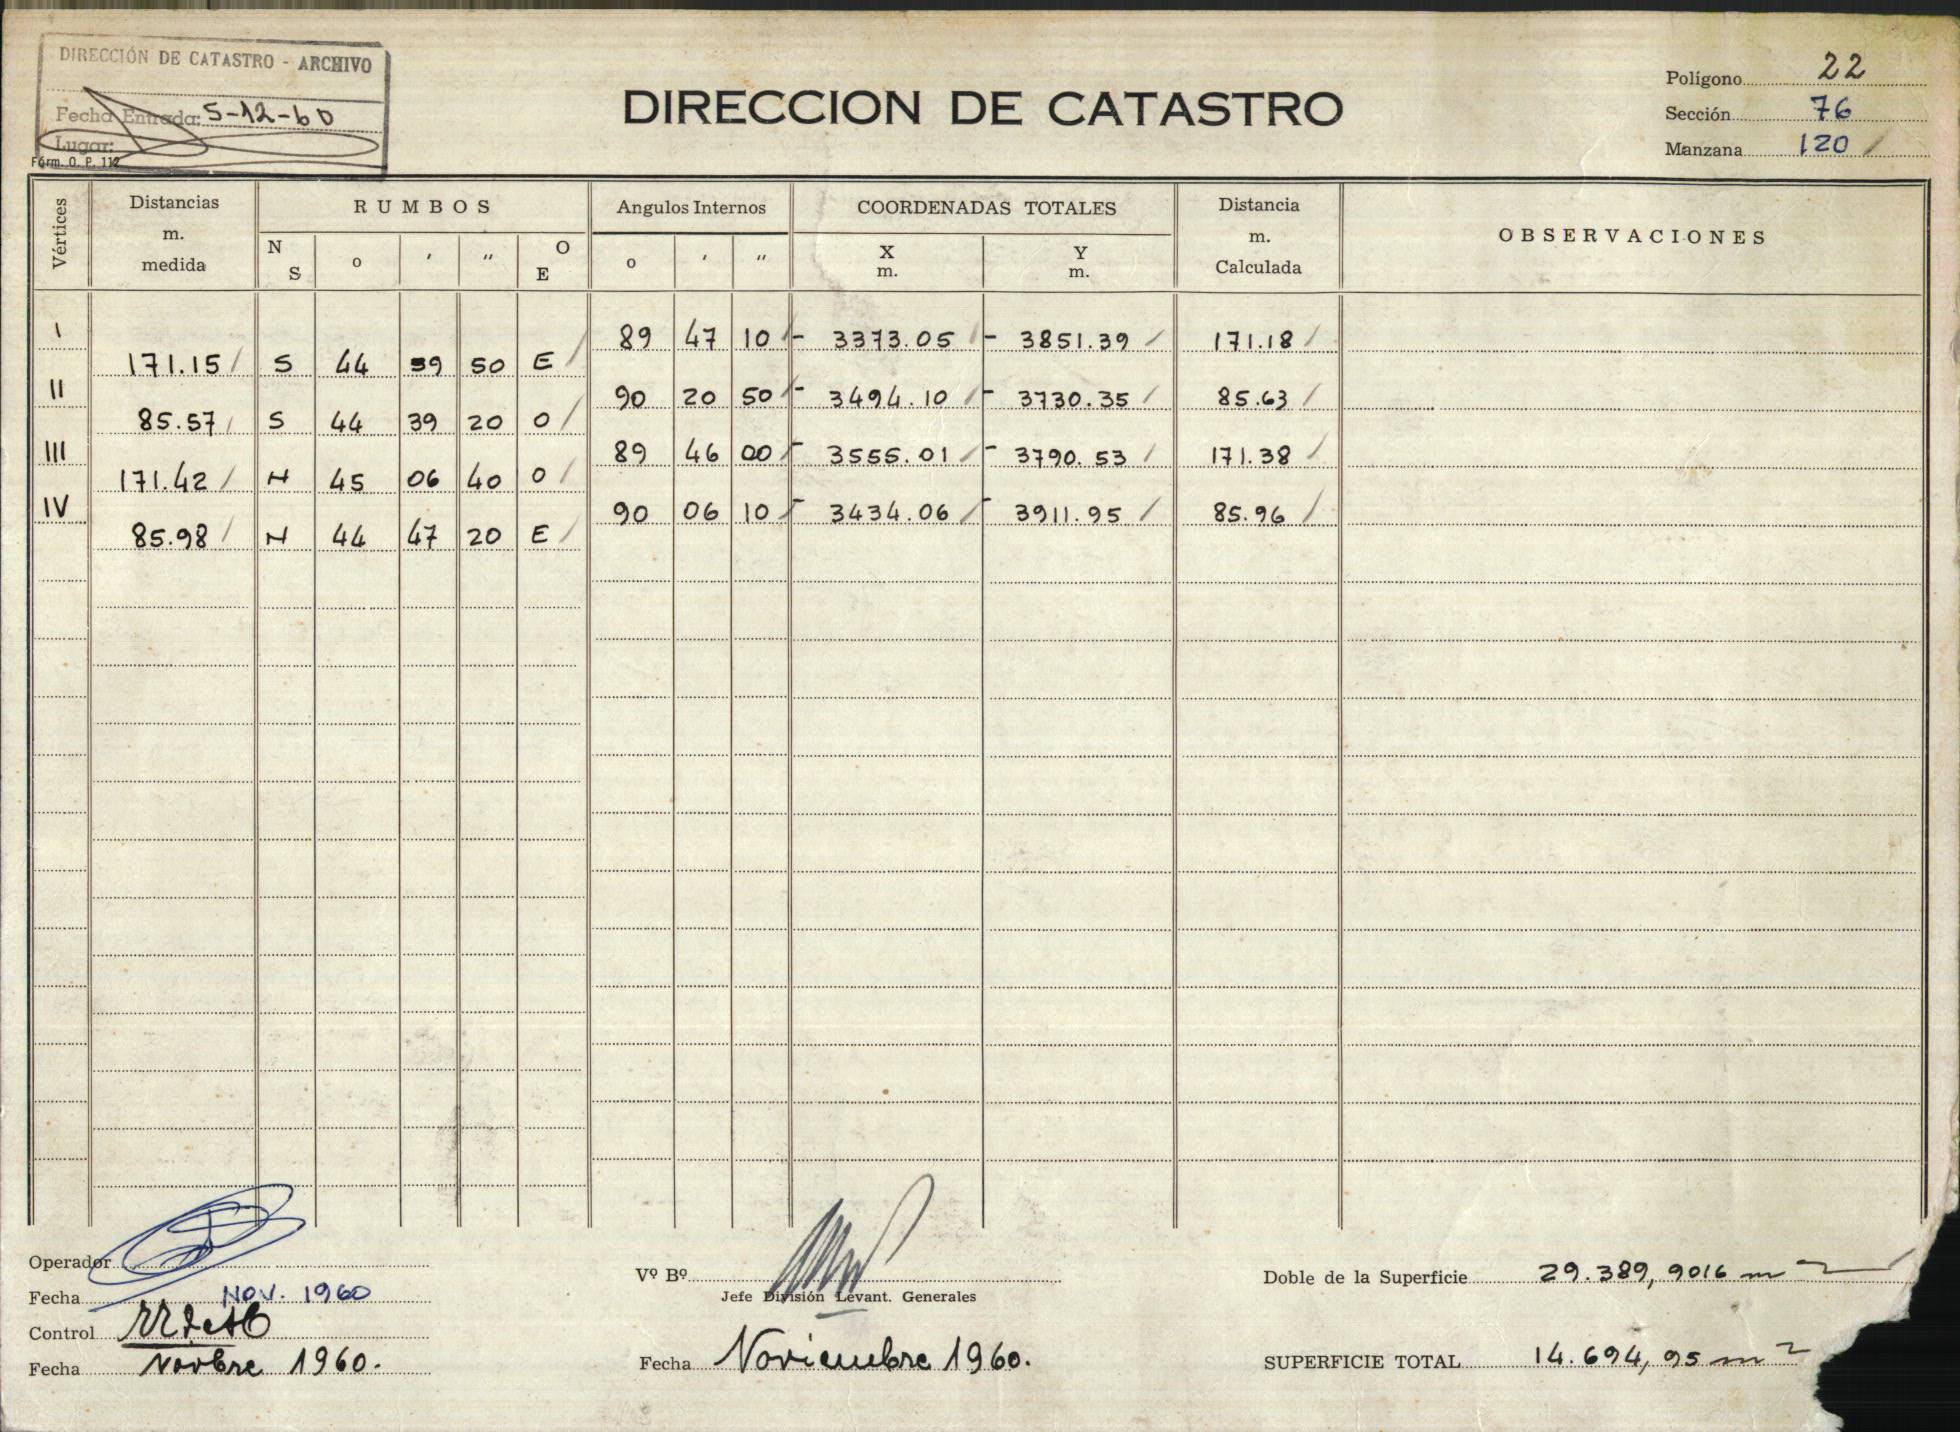 DIRECCIÓN DE CATASTRO - ARCHIVO
Fecha Entrada: 5-12-60
Lugar:
Fórm. O. P. 112
DIRECCION DE CATASTRO
Polígono 22
Sección 76
Manzana 120 /
Vértices Distancias m. medida RUMBOS Angulos Internos COORDENADAS TOTALES Distancia m. Calculada OBSERVACIONES
N S o ′ ″ O E o ′ ″ X m. Y m.
I 89 47 10 / - 3373.05 / - 3851.39 / 171.18 /
171.15 / S 44 59 50 E /
II 90 20 50 / - 3494.10 / - 3730.35 / 85.63 /
85.57 / S 44 39 20 O /
III 89 46 00 / - 3555.01 / - 3790.53 / 171.38 /
171.42 / N 45 06 40 O /
IV 90 06 10 / - 3434.06 / - 3911.95 / 85.96 /
85.98 / N 44 47 20 E /
Operador
Fecha NOV. 1960
Control
Fecha Novbre 1960.
Vº Bº
Jefe División Levant. Generales
Fecha Noviembre 1960.
Doble de la Superficie 29.389,9016 m2
SUPERFICIE TOTAL 14.694,95 m2